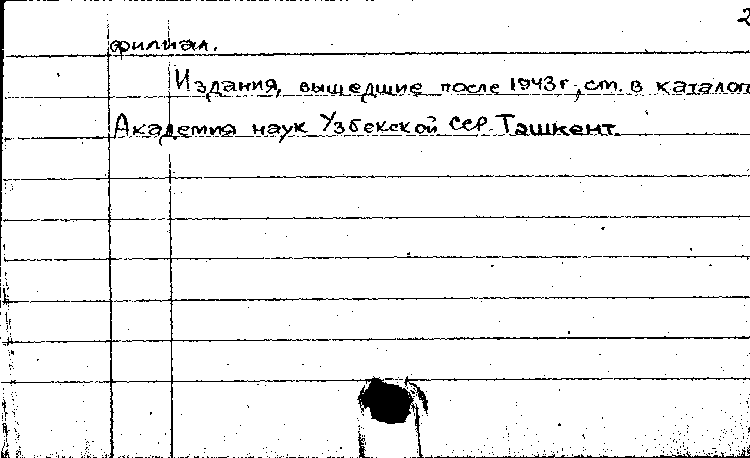 2
филиал.
Издания, вышедшие после 1943 г., см. в каталог
Академия наук Узбекской ССР. Ташкент.